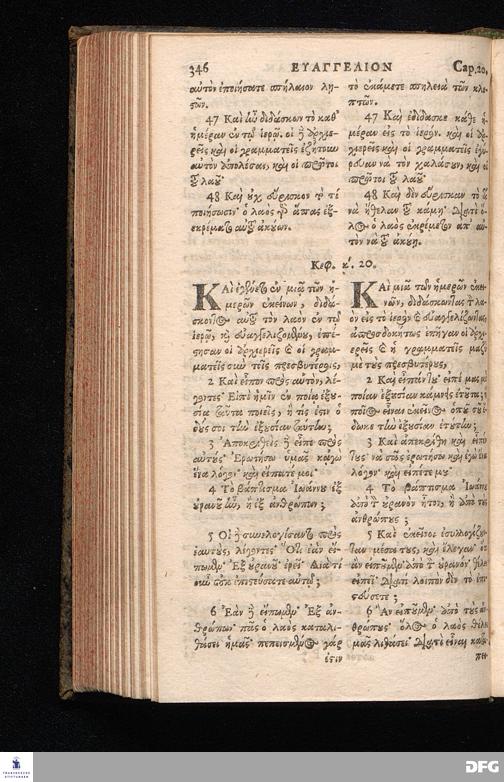 346 ΕΥΑΓΓΕΛΙΟΝ Cap.20.
αὐτὸν ἐποιήσατε σπήλαιον λῃ-
ςῶν.
47 Καὶ ἦν διδάσκων τὸ καθ'
ἡμέραν ἐν τῷ ἱερῷ. οἱ δὲ ἀρχιε-
ρεῖς καὶ οἱ γραμματεῖς ἐζήτουν
αὐτὸν ἀπολέσαι, καὶ οἱ πρῶτοι
τοῦ λαοῦ·
48 Καὶ οὐχ εὕρισκον τὸ τί
ποιήσωσιν· ὁ λαὸς γὰρ ἅπας ἐξ-
εκρέματο αὐτοῦ ἀκούων.
τὸ ἐκάμετε σπηλαιὰ τῶν κλε-
πτῶν.
47 Καὶ ἐδίδασκε κάθε ἡ-
μέραν εἰς τὸ ἱερόν. καὶ οἱ ἀρ-
χιερεῖς καὶ οἱ γραμματεῖς
νὰ τὸν χαλάσουν, καὶ οἱ
πρῶτοι τοῦ λαοῦ·
48 Καὶ δὲν εὕρισκαν τὸ
νὰ ἤθελαν τοῦ κάμῃ· διατὶ ὅ-
λος ὁ λαὸς ἐκρέμετον ἀπ' αὐ-
τὸν νὰ τοῦ ἀκούῃ.
Κεφ. κʹ. 20.
ΚΑὶ ἐγένετο ἐν μιᾷ τῶν ἡ-
μερῶν ἐκείνων, διδά-
σκοντος αὐτοῦ τὸν λαὸν ἐν τῷ
ἱερῷ, καὶ εὐαγγελιζομένου, ἐπέ-
ςησαν οἱ ἀρχιερεῖς καὶ οἱ γραμ-
ματεῖς σὺν τοῖς πρεσβυτέροις,
2 Καὶ εἶπον πρὸς αὐτὸν, λέ-
γοντες· Εἰπὲ ἡμῖν ἐν ποίᾳ ἐξου-
σίᾳ ταῦτα ποιεῖς, ἢ τίς ἐςιν ὁ
δούς σοι τὴν ἐξουσίαν ταύτην;
3 Ἀποκριθεὶς δὲ εἶπε πρὸς
αὐτούς· Ἐρωτήσω ὑμᾶς κἀγὼ
ἕνα λόγον· καὶ εἴπατέ μοι·
4 Τὸ βάπτισμα Ἰωάννου ἐξ
οὐρανοῦ ἦν, ἢ ἐξ ἀνθρώπων;
5 Οἱ δὲ συνελογίσαντο πρὸς
ἑαυτοὺς, λέγοντες· Ὅτι ἐὰν εἴ-
πωμεν· Ἐξ οὐρανοῦ· ἐρεῖ· Διατί
οὖν οὐκ ἐπιςεύσατε αὐτῷ;
6 Ἐὰν δὲ εἴπωμεν· Ἐξ ἀν-
θρώπων· πᾶς ὁ λαὸς καταλι-
θάσει ἡμᾶς· πεπεισμένος γάρ
ἐςιν
ΚΑὶ μιᾷ τῶν ἡμερῶν ἐκεί-
νων, διδάσκωντας τὸν λα-
ὸν εἰς τὸ ἱερὸν καὶ εὐαγγελίζωντας,
ἀπροσδοκήτως ἐπῆγαν οἱ ἀρχι-
ερεῖς καὶ οἱ γραμματεῖς μαζὶ
μὲ τοὺς πρεσβυτέρους,
2 Καὶ εἶπάν του· εἰπέ μας μὲ
ποίαν ἐξουσίαν κάμνεις ἐτοῦτα;
ποῖος εἶναι ἐκεῖνος ὁποῦ σοῦ ἔ-
δωκε τὴν ἐξουσίαν ἐτούτην;
3 Καὶ ἀπεκρίθη καὶ εἶπέν
τους· νὰ σᾶς ἐρωτήσω καὶ ἐγὼ ἕνα
λόγον· καὶ εἰπέτε μου·
4 Τὸ βάπτισμα Ἰωάννου
ἀπὸ τὸν οὐρανὸν ἦτον, ἢ ἀπὸ τοὺς
ἀνθρώπους;
5 Καὶ ἐκεῖνοι ἐσυλλογίζον-
ταν μέσα τους, καὶ ἔλεγαν· ὅτι
ἂν εἰποῦμεν ἀπὸ τὸν οὐρανόν· θέλει
εἰπεῖ· Διατὶ λοιπὸν δὲν τὸ ἐπι-
ςεύσετε;
6 Ἂν εἰποῦμεν ἀπὸ τοὺς ἀν-
θρώπους· ὅλος ὁ λαὸς θέλει
μᾶς λιθάσει· Διατὶ εἶναι
πει-
FRANCKESCHE STIFTUNGEN
DFG